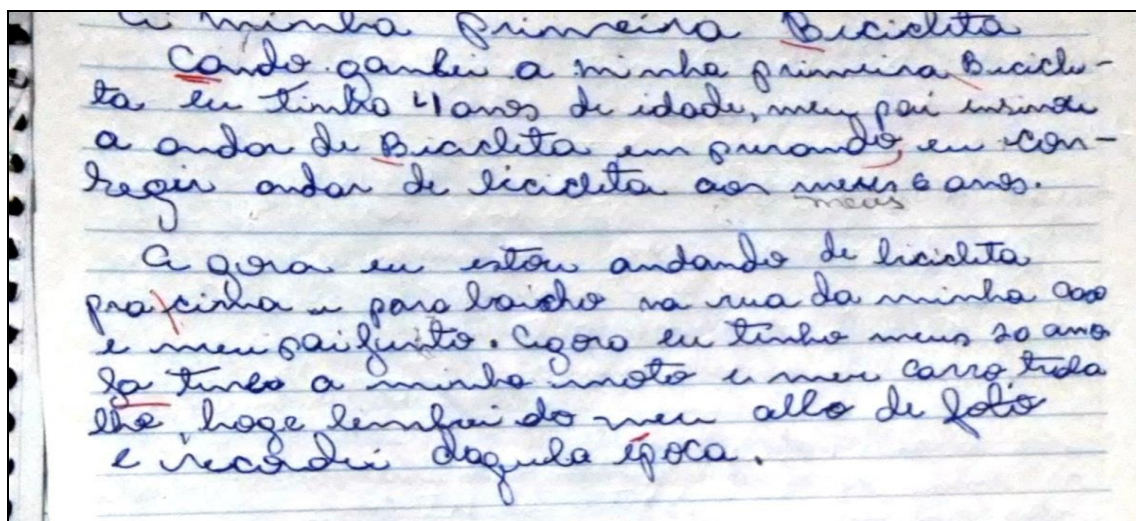 A minha primeira Bicicleta
Cando ganhei a minha primeira Bicicle-
ta eu tinha 4 anos de idade, meu pai insinou
a andar de Bicicleta em purando, eu con-
segir andar de bicicleta aos meus 6 anos.
meus
A gora eu estou andando de bicicleta
pra cinha e para baicho na rua da minha casa
e meu pai junto. Agora eu tinho meus 20 anos
Ja tinho a minha moto e meu carro, traba
lho, hoge lembrei do meu albo de foto
e recordei daquela época.